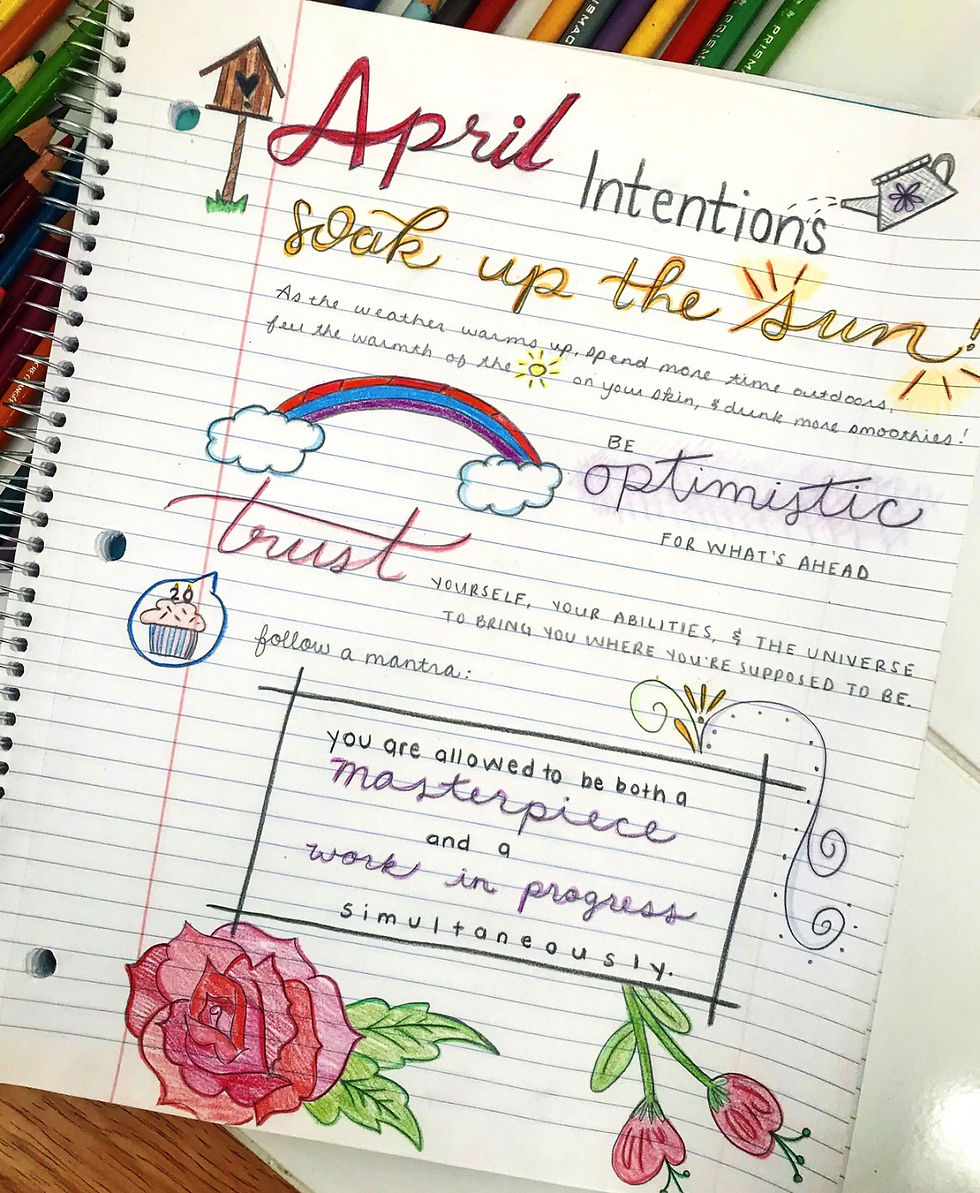 April
Intentions
soak up the Sun!
As the weather warms up, spend more time outdoors,
feel the warmth of the on your skin, & drink more smoothies!
BE
optimistic
FOR WHAT'S AHEAD
trust
YOURSELF, YOUR ABILITIES, & THE UNIVERSE
TO BRING YOU WHERE YOU'RE SUPPOSED TO BE.
20
follow a mantra:
you are allowed to be both a
masterpiece
and a
work in progress
simultaneously.